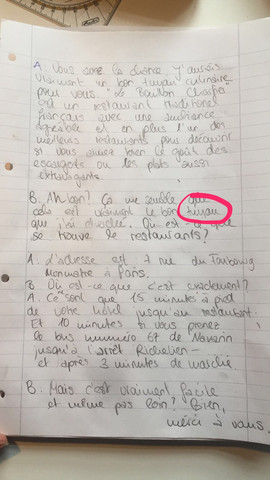 A. Vous avez la chance, j'aurais
vraiment un bon tuyau culinaire
pour vous. "Le Bouillon Chartier"
est un restaurant traditionel
français avec une ambiance
agréable et en plus l'un des
meilleurs restaurants pour découvrir
si vous aimez bien le goût des
escargots ou les plats aussi
extravagants.
B. Ah bon? Ça me semble que
cela est vraiment le bon tuyau
que j'ai cherché. Où est-ce que
se trouve le restaurants?
A. L'adresse est 7 rue du Faubourg
Monmatre à Paris.
B Où est-ce que c'est exactement?
A. Ce sont que 15 minutes à pied
de votre hôtel jusqu'au restaurant.
Et 10 minutes si vous prenez
le bus numéro 67 de Navarin
jusqu'à l'arrêt Richelieu-
et après 3 minutes de marche
B. Mais c'est vraiment facile
et même pas loin? Bien,
merci à vous.